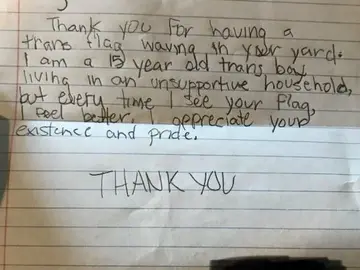 Thank you for having a
trans flag waving in your yard.
I am a 15 year old trans boy
living in an unsupportive household,
but every time I see your flag,
I feel better. I appreciate your
existence and pride.
THANK YOU